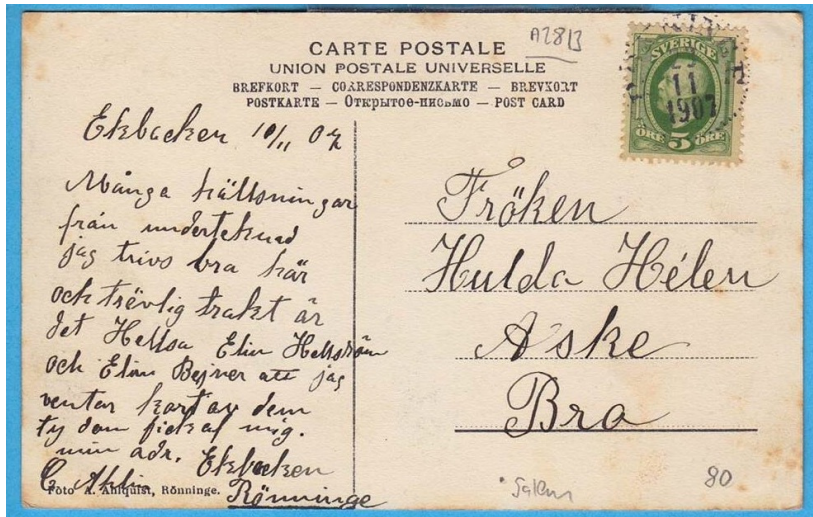 A28B
CARTE POSTALE
UNION POSTALE UNIVERSELLE
BREFKORT — CORRESPONDENZKARTE — BREVKORT
POSTKARTE — Открытое-письмо — POST CARD
SVERIGE
11
1907
ÖRE 5 ÖRE
Ekbacken 10/11 07
Många hällsningar
från underteknad
jag trivs bra här
och trävlig trakt är
det Hellsa Elin Hellström
och Elin Bejner att jag
ventar kort av dem
ty dom fick af mig.
min adr. Ekbacken
Rönninge
Fröken
Hulda Hélen
Aske
Bro
Foto A. Ahlquist, Rönninge.
Salem
80